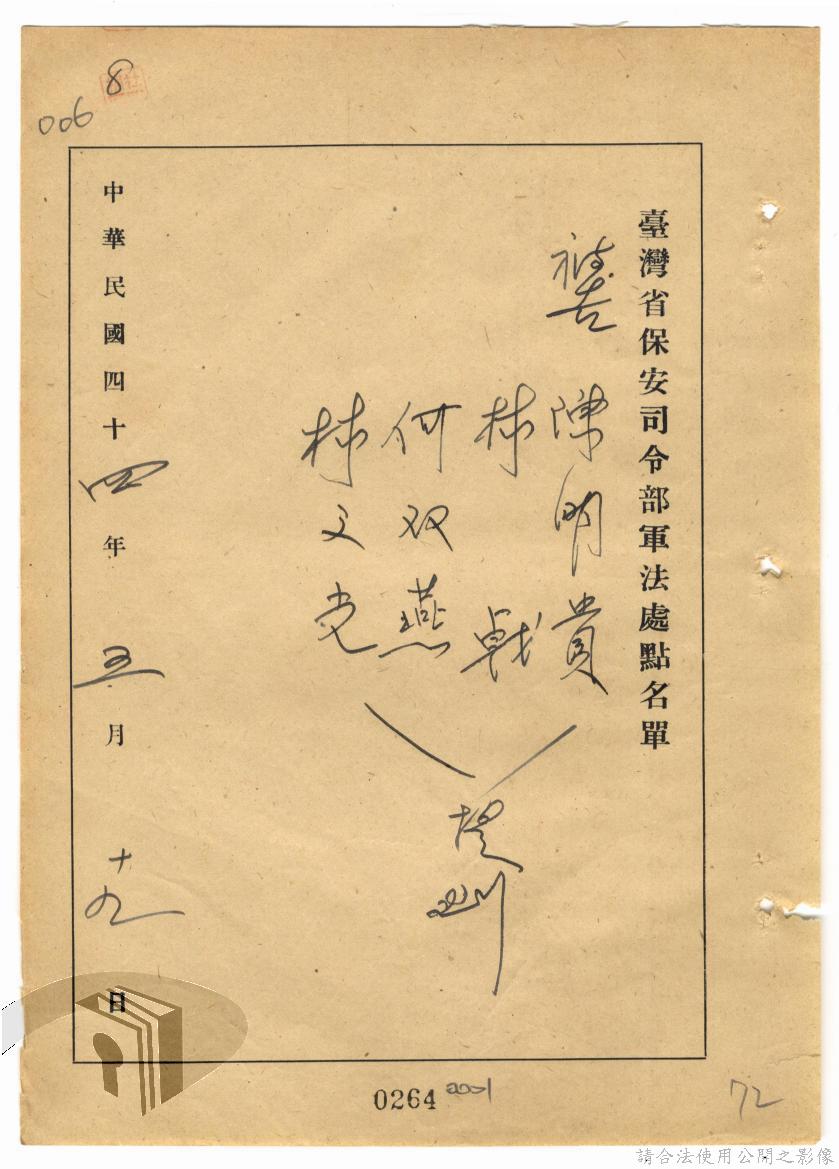 8
006
臺灣省保安司令部軍法處點名單
陳明貴
林戟
何双燕
林文光
提訊
中華民國四十四年五月十九日
0264
72
請合法使用公開之影像